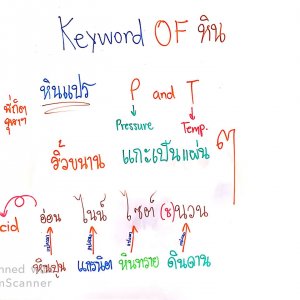 Keyword OF หิน
หินแปร P and T
พี่กั๊ต
จุฬาฯ
Pressure Temp.
ริ้วขนาน แกะเป็นแผ่น ๆ
cid อ่อน ไนน์ ไซต์ (ช)นวน
หินปูน แกรนิต หินทราย ดินดาน
nned w
mScanner